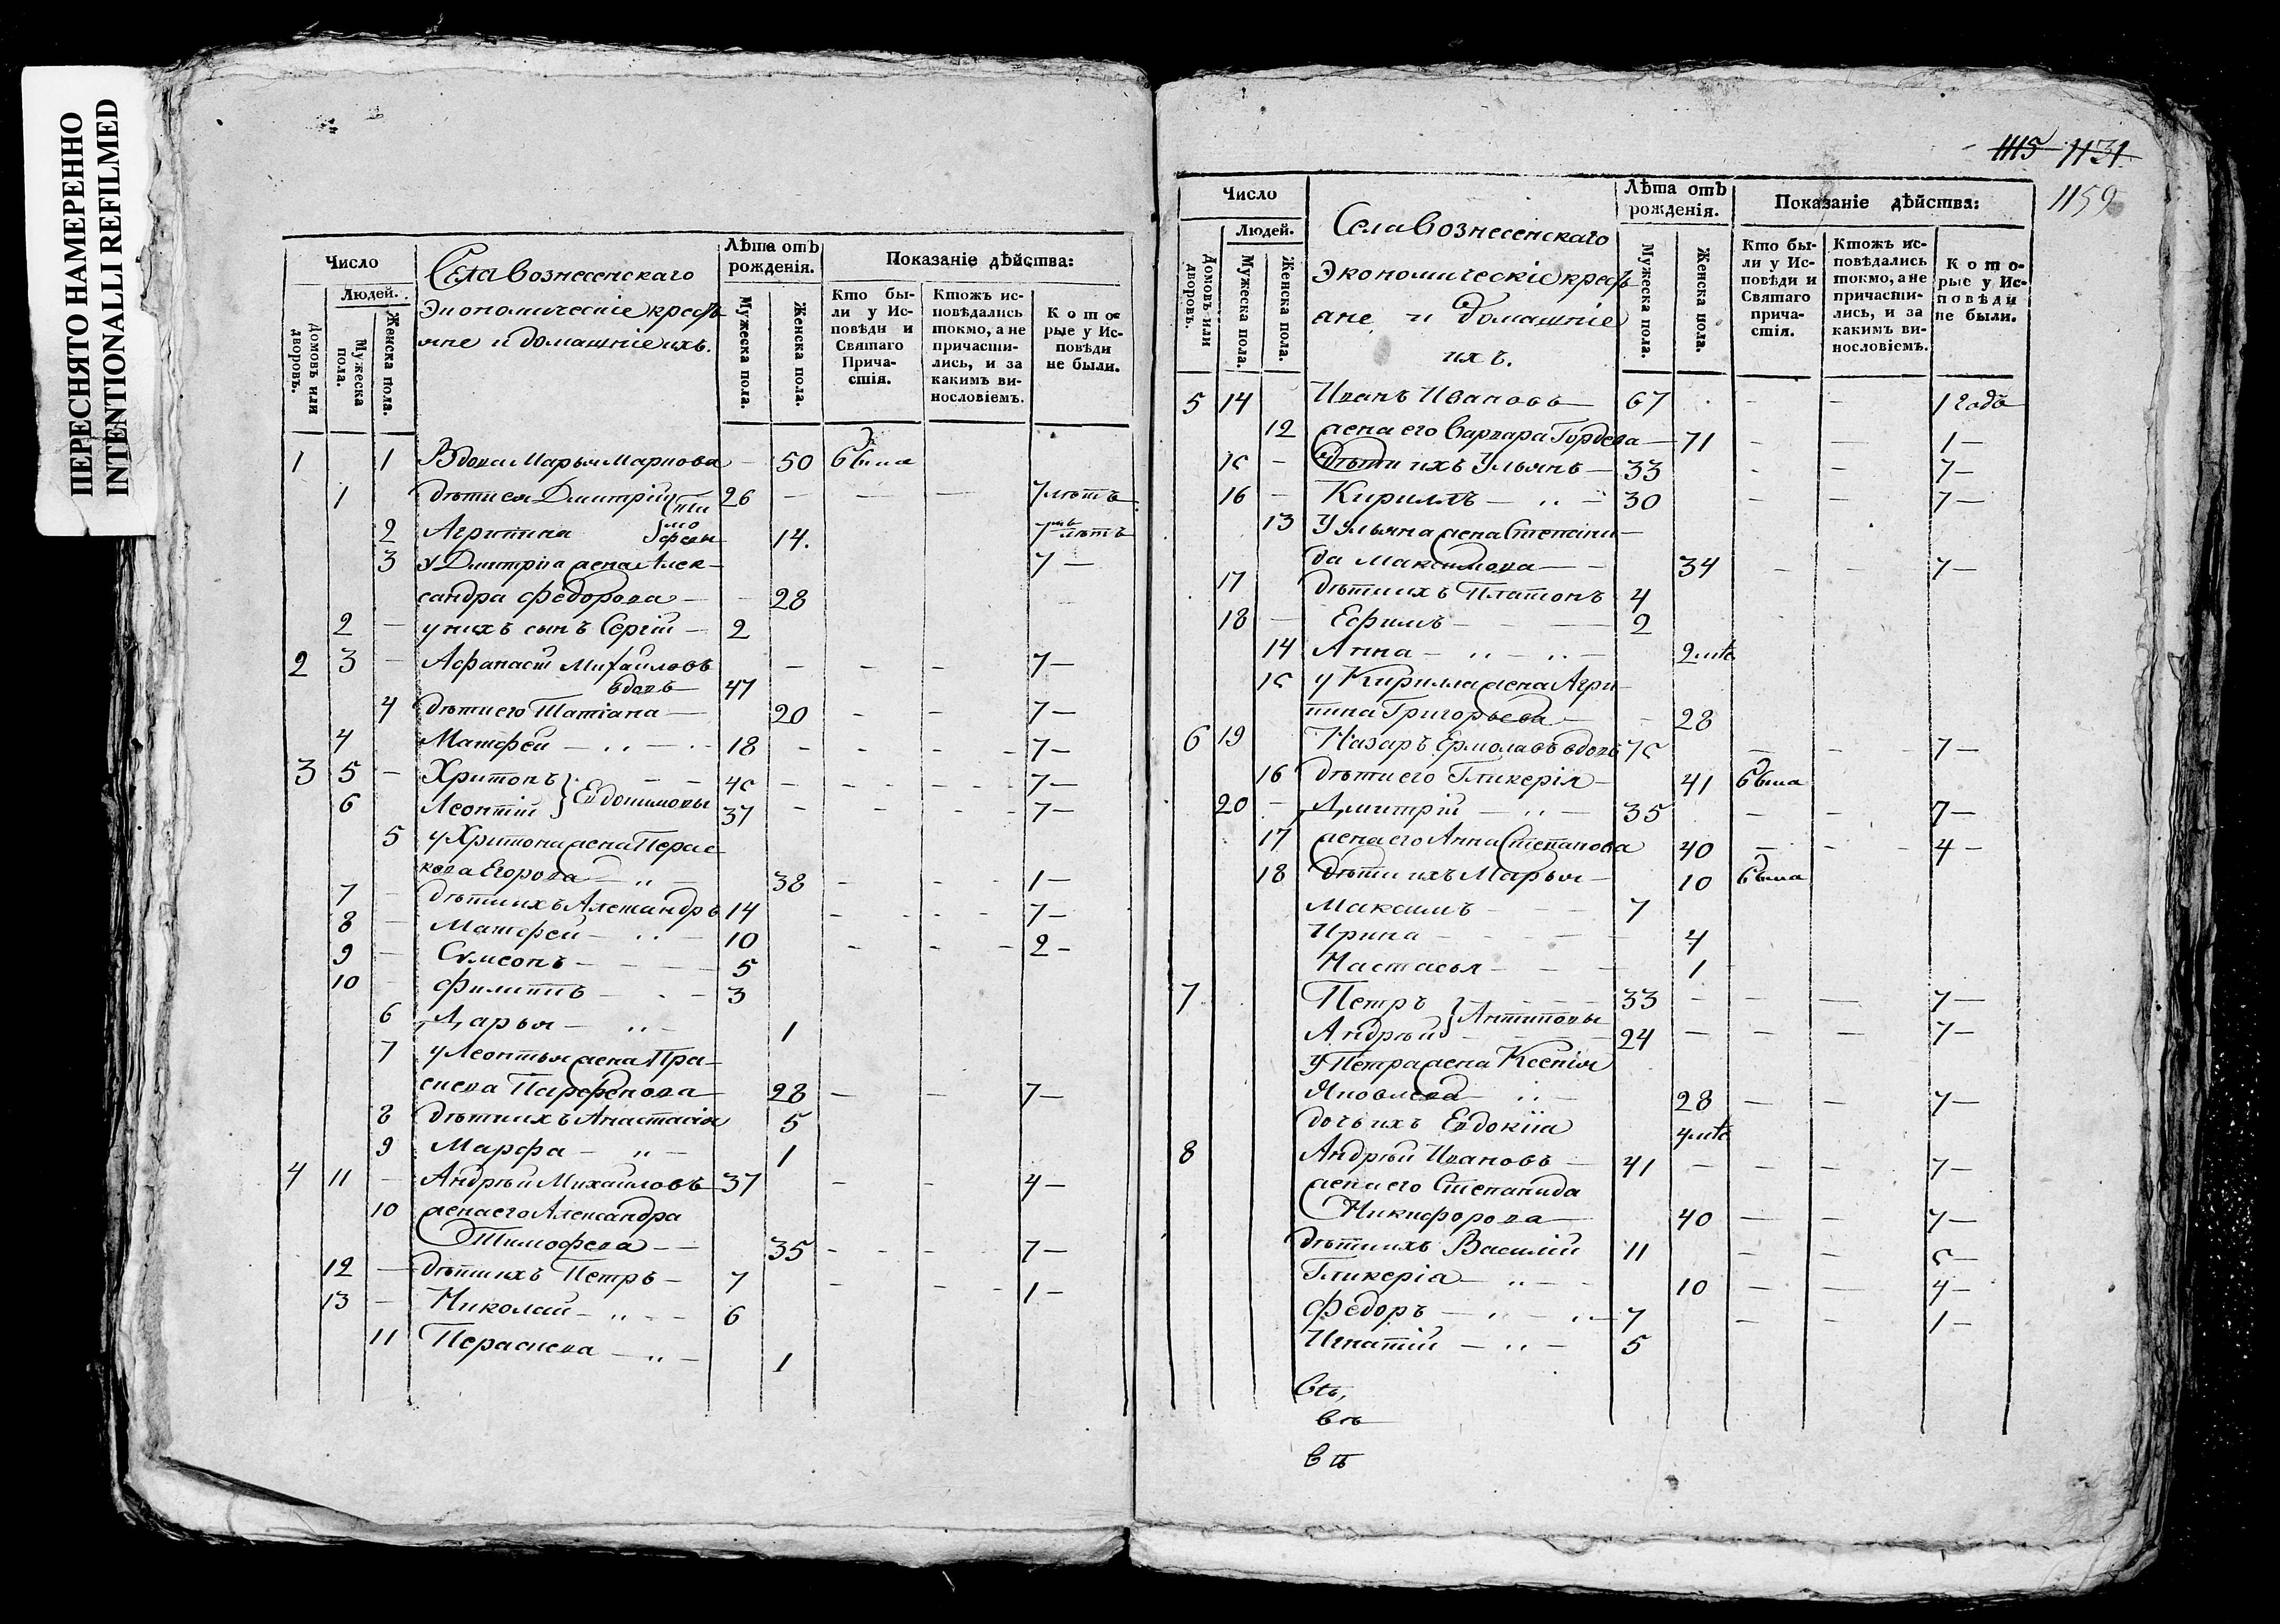 ПЕРЕСНЯТО НАМЕРЕННО
INTENTIONALLI REFILMED
Число
Людей.
Домовъ или дворовъ.
Мужеска пола.
Женска пола.
Села Вознесенскаго
Экономическіе кресть
яне и домашніе ихъ.
Лѣта отъ рожденія.
Мужеска пола.
Женска пола.
Показаніе дѣйства:
Кто бы-
ли у Ис-
повѣди и
Святаго
Прича-
стія.
Ктожъ ис-
повѣдались
токмо, а не
причасти-
лись, и за
какимъ ви-
нословіемъ.
К о т о
рые у Ис-
повѣди
не были.
1 1 Вдова Марья Маркова 50 была
1 дѣти ея Дмитрій 26 — — 7 лѣтъ
2 Агрипина 14. 7 лѣтъ
3 у Дмитріа жена Алек- 7 —
сандра Федорова — 28
2 — у нихъ сынъ Сергій — 2
2 3 — Афанасій Михайловъ — — — 7 —
вдовъ — 47
4 дѣти его Татіана — 20 — — 7 —
4 Матфей — 18 — — — 7 —
3 5 — Харитонъ } 45 — — — 7 —
6 Леонтій } Евдокимовы 37 — — — 7 —
5 у Харитона жена Парас
кева Егорова — 38 — — 1 —
7 — дѣти ихъ Александръ 14 — — 7 —
8 — Матфей — 10 — — 2 —
9 — Сумсонъ — 5
10 — Филиппъ — 3
6 Дарья — 1
7 у Леонтья жена Пра-
скева Парфенова 28 — — 7 —
8 дѣти ихъ Анастасія 5
9 Марфа — 1
4 11 — Андрей Михайловъ — 37 — — 4 —
10 жена его Александра
Тимофева — 35 — — 7 —
12 — дѣти ихъ Петръ — 7 — — 1 —
13 — Николай — 6
11 Параскева — 1
1115 1131
1159
Число
Людей.
Домовъ или дворовъ.
Мужеска пола.
Женска пола.
Села Вознесенскаго
Экономическіе кресть
яне и домашніе
ихъ.
Лѣта отъ рожденія.
Мужеска пола.
Женска пола.
Показаніе дѣйства:
Кто бы-
ли у Ис-
повѣди и
Святаго
прича-
стія.
Ктожъ ис-
повѣдались
токмо, а не
причасти-
лись, и за
какимъ ви-
нословіемъ.
К о т о-
рые у Ис-
повѣди
не были.
5 14 Иванъ Ивановъ — 67 — — 1 годъ
12 жена его Варвара Гордева — 71 — — 1 —
15 — дѣти ихъ Ульянъ — 33 — — 7 —
16 — Кириллъ — 30 — — 7 —
13 У Ульяна жена Степани-
да Максимова — 34 — — 7 —
17 дѣти ихъ Платонъ 4
18 — Ефимъ — 2
14 Анна — 2 мѣ
15 у Кирилла жена Агри-
пина Григорьева — 28
6 19 Назаръ Ермолаевъ вдовъ 75 — — 7 —
16 дѣти его Гликерія — 41 была
20 — Дмитрій — 35 — — 7 —
17 жена его Анна Степанова 40 — — 4 —
18 дѣти ихъ Марья — 10 была
Максимъ — 7
Ирина — 4
Настасья — 1
7 Петръ } 33 — — — 7 —
Андрѣй } Антиповы 24 — — — 7 —
У Петра жена Ксенія
Яковлева — 28 — — 7 —
дочь ихъ Евдокіа 4 мѣ
8 Андрѣй Ивановъ — 41 — — — 7 —
жена его Степанида
Никифорова — 40 — — 7 —
дѣти ихъ Василій 11 — — 5 —
Гликеріа — 10 — — 4 —
Федоръ — 7 — — 1 —
Игнатій — 5